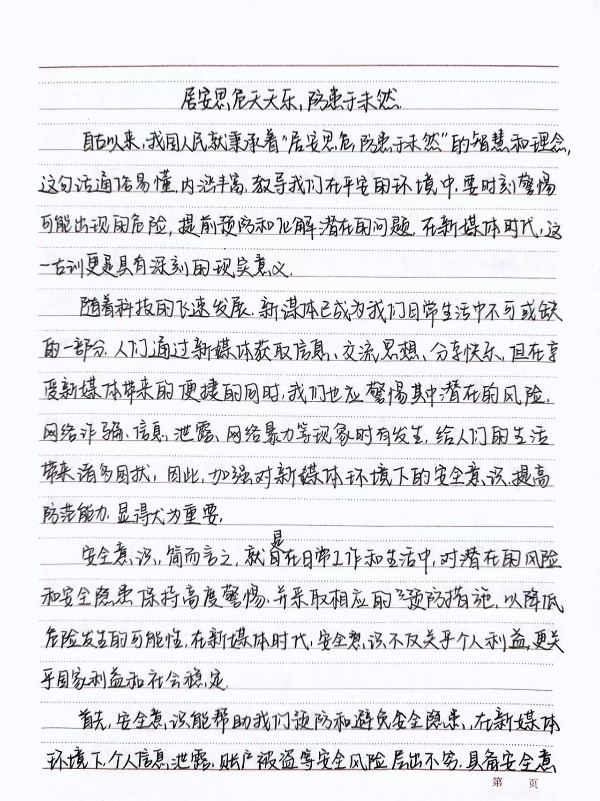 居安思危天天乐,防患于未然.
自古以来,我国人民就秉承着"居安思危,防患于未然"的智慧和理念,
这句话通俗易懂,内涵丰富,教导我们在平安的环境中,要时刻警惕
可能出现的危险,提前预防和化解潜在的问题.在新媒体时代,这
一古训更是具有深刻的现实意义.
随着科技的飞速发展.新媒体已成为我们日常生活中不可或缺
的一部分.人们通过新媒体获取信息、交流思想、分享快乐.但在享
受新媒体带来的便捷的同时,我们也应警惕其中潜在的风险,
网络诈骗、信息泄露、网络暴力等现象时有发生,给人们的生活
带来诸多困扰,因此,加强对新媒体环境下的安全意识,提高
防范能力.显得尤为重要,
安全意识,简而言之,就是在日常工作和生活中,对潜在的风险
和安全隐患保持高度警惕.并采取相应的预防措施,以降低
危险发生的可能性,在新媒体时代,安全意识不仅关乎个人利益,更关
乎国家利益和社会稳定.
首先,安全意识能帮助我们预防和避免安全隐患,在新媒体
环境下,个人信息泄露、账户被盗等安全风险层出不穷.具备安全意
第 页